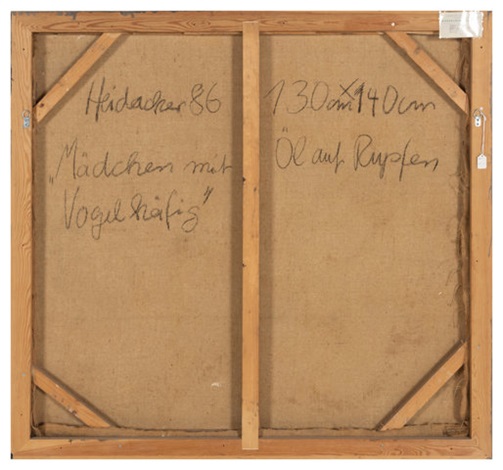 Heidacker 86
„Mädchen mit
Vogelkäfig"
130cm x 140cm
Öl auf Rupfen